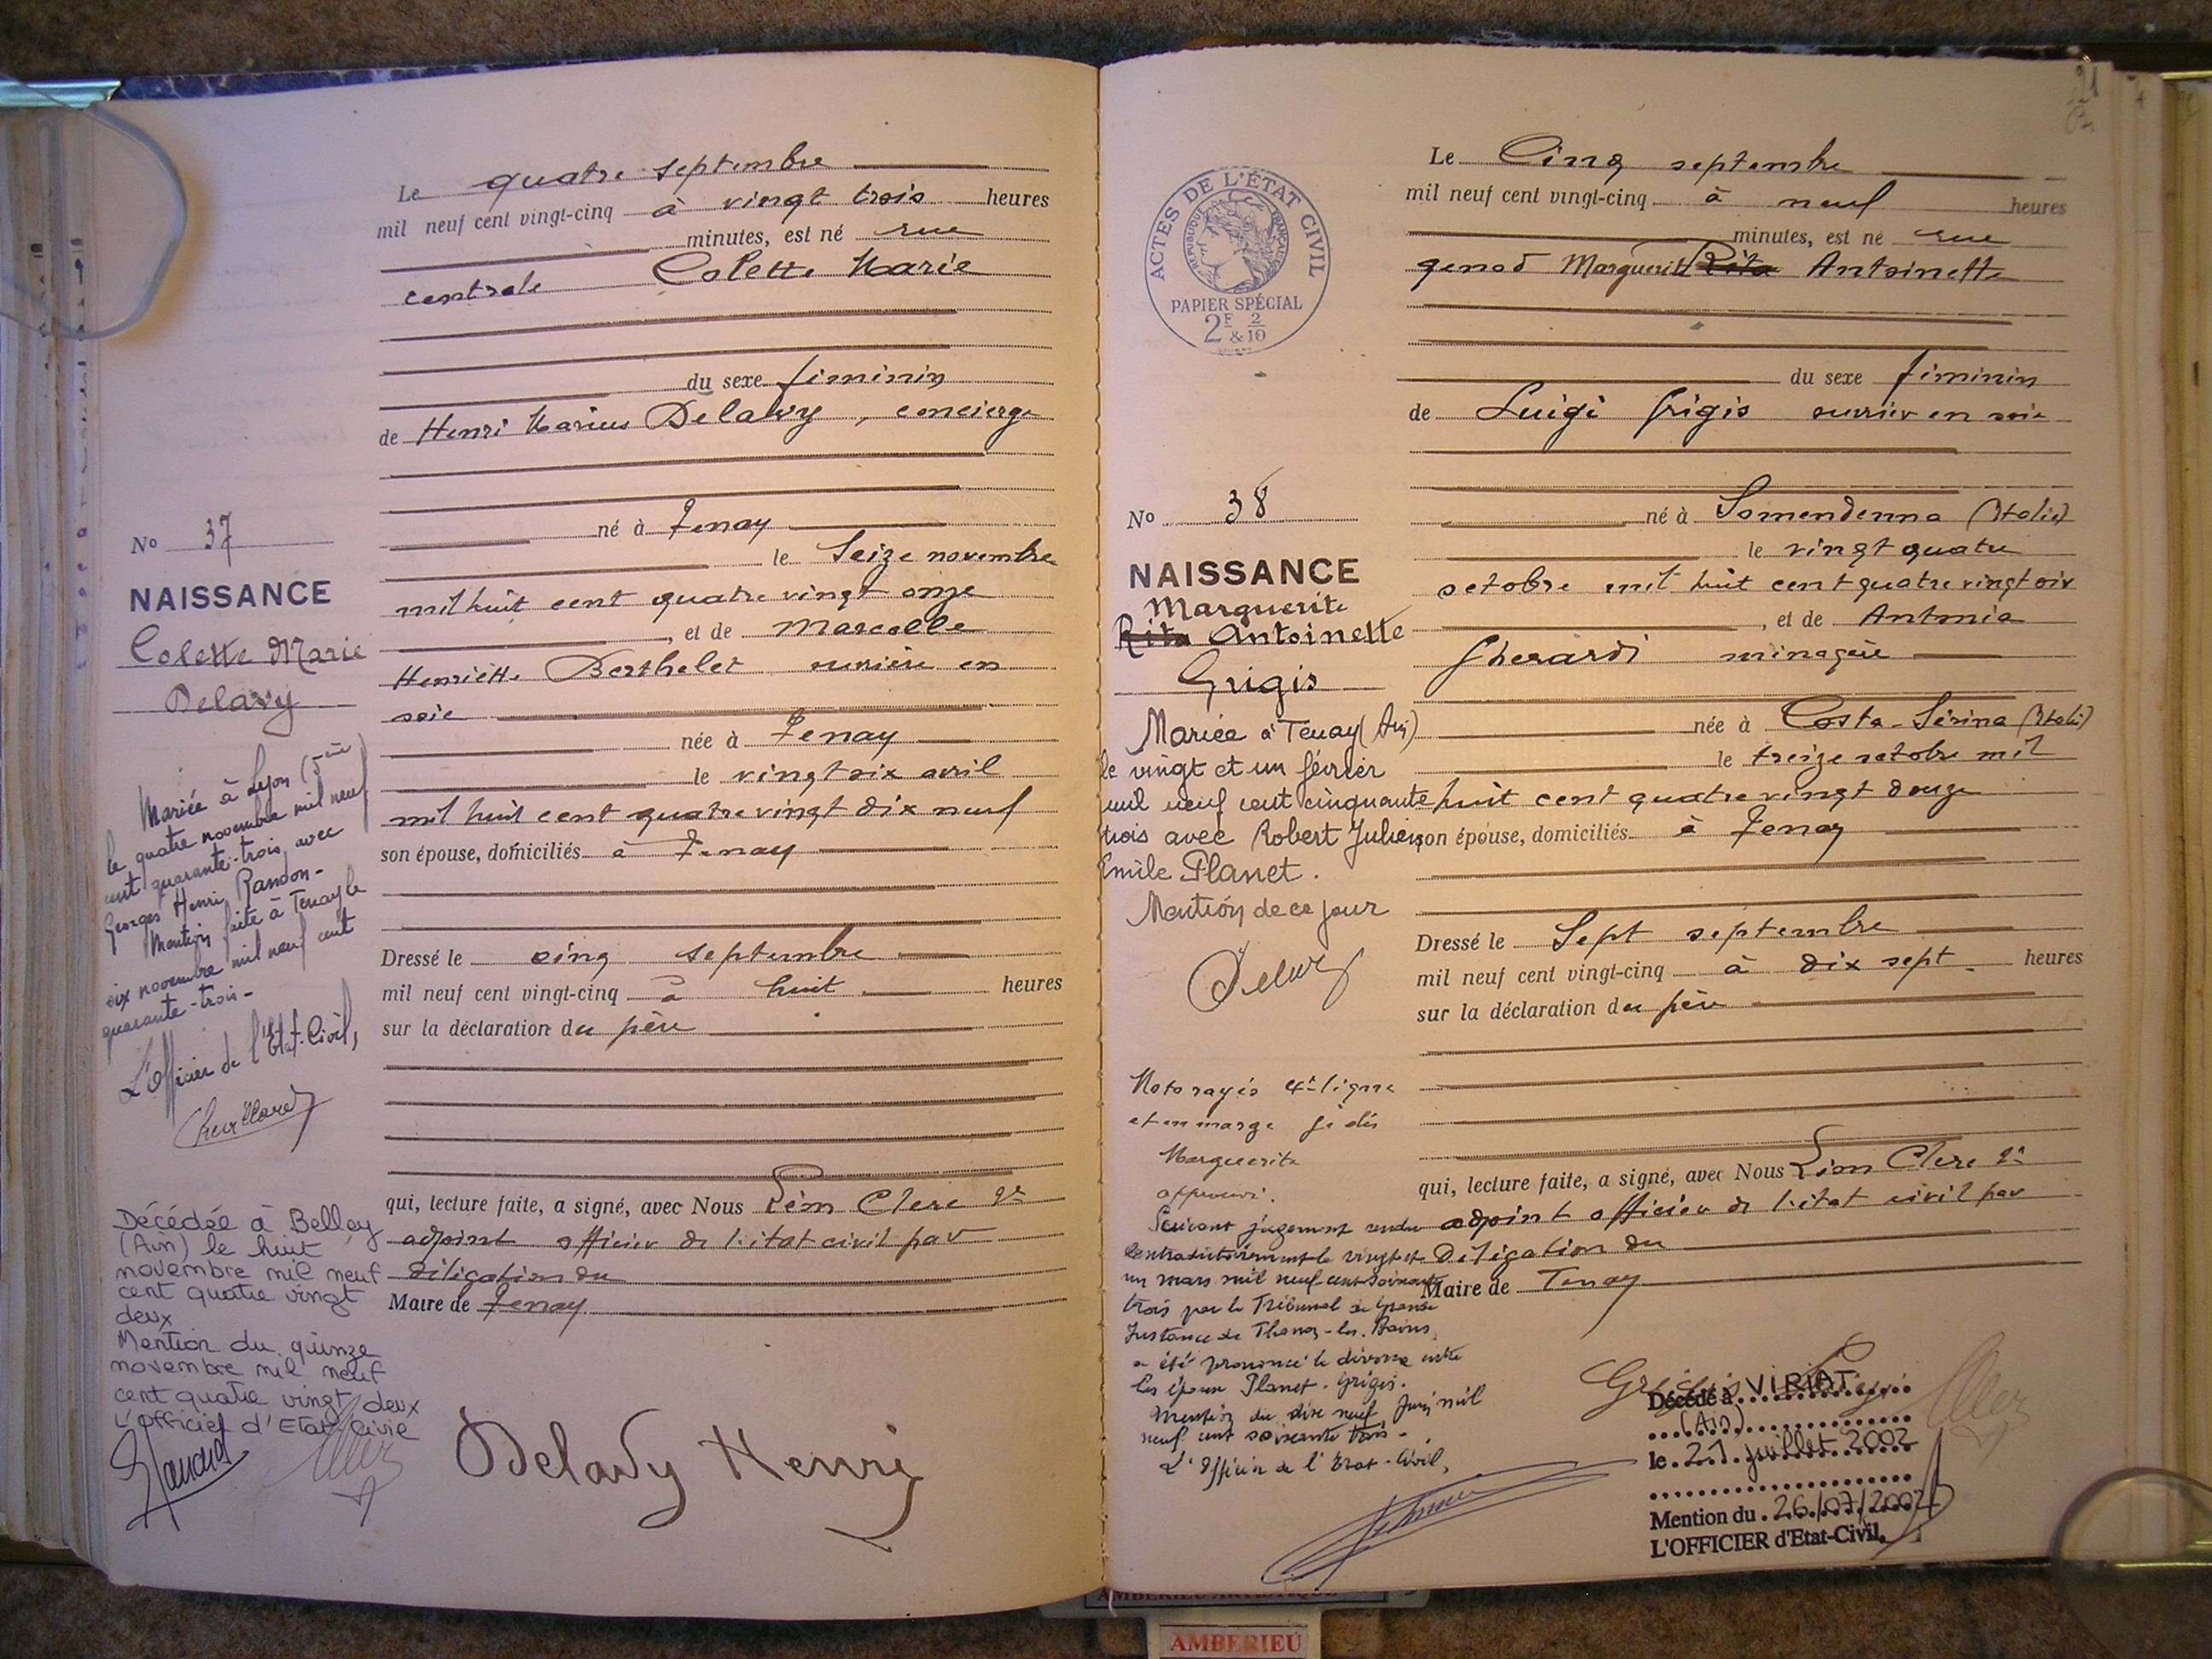 Le quatre septembre
mil neuf cent vingt-cinq à vingt trois heures
minutes, est né rue
centrale Colette Marie
du sexe féminin
de Henri Marius Delavy, concierge
né à Tenay
le Seize novembre
mil huit cent quatre vingt onze
, et de Marcelle
Henriette Berthelet ouvrière en
soie
née à Tenay
le vingt six avril
mil huit cent quatre vingt dix neuf
son épouse, domiciliés à Tenay
Dressé le cinq septembre
mil neuf cent vingt-cinq à huit heures
sur la déclaration du père
qui, lecture faite, a signé, avec Nous Léon Clerc 2e
adjoint officier de l'état civil par
délégation du
Maire de Tenay
Delavy Henri
No 37
NAISSANCE
Colette Marie
Delavy
Mariée à Lyon (5ème)
le quatre novembre mil neuf
cent quarante-trois avec
Georges Henri Randon-
Mention faite à Tenay le
six novembre mil neuf cent
quarante-trois-
L'Officier de l'Etat-Civil,
Décédée à Belley
(Ain) le huit
novembre mil neuf
cent quatre vingt
deux
Mention du quinze
novembre mil neuf
cent quatre vingt deux
L'officier d'Etat Civil
Le Cinq septembre
mil neuf cent vingt-cinq à neuf heures
minutes, est né rue
genod Marguerite Rita Antoinette
du sexe féminin
de Luigi Grigis ouvrier en soie
né à Somendenna (Italie)
le vingt quatre
octobre mil huit cent quatre vingt six
, et de Antonia
Gherardi ménagère
née à Costa-Sérina (Italie)
le treize octobre mil
huit cent quatre vingt douze
son épouse, domiciliés à Tenay
Dressé le Sept septembre
mil neuf cent vingt-cinq à dix sept heures
sur la déclaration du père
qui, lecture faite, a signé, avec Nous Léon Clerc 2e
adjoint officier de l'état civil par
Délégation du
Maire de Tenay
ACTES DE L'ÉTAT CIVIL
REPUBLIQUE FRANÇAISE
PAPIER SPÉCIAL
2F & 2/10
No 38
NAISSANCE
Marguerite
Rita Antoinette
Grigis
Mariée à Tenay (Ain)
le vingt et un février
mil neuf cent cinquante
trois avec Robert Julien
Emile Planet.
Mention de ce jour
Mots rayés 4e ligne
et en marge
Marguerite
approuvé.
Suivant jugement rendu
contradictoirement le vingt et
un mars mil neuf cent soixante
trois par le Tribunal de Grande
Instance de Thonon-les-Bains,
a été prononcé le divorce entre
les époux Planet-Grigis.
Mention du dix neuf Juin mil
neuf cent soixante trois-
L'Officier de l'Etat-Civil,
Grigis Luigi
Décédé à VIRIAT
(Ain)
le 21 juillet 2002
Mention du 26/07/2002
L'OFFICIER d'Etat-Civil,
AMBERIEU ARTISTIQUE
AMBERIEU